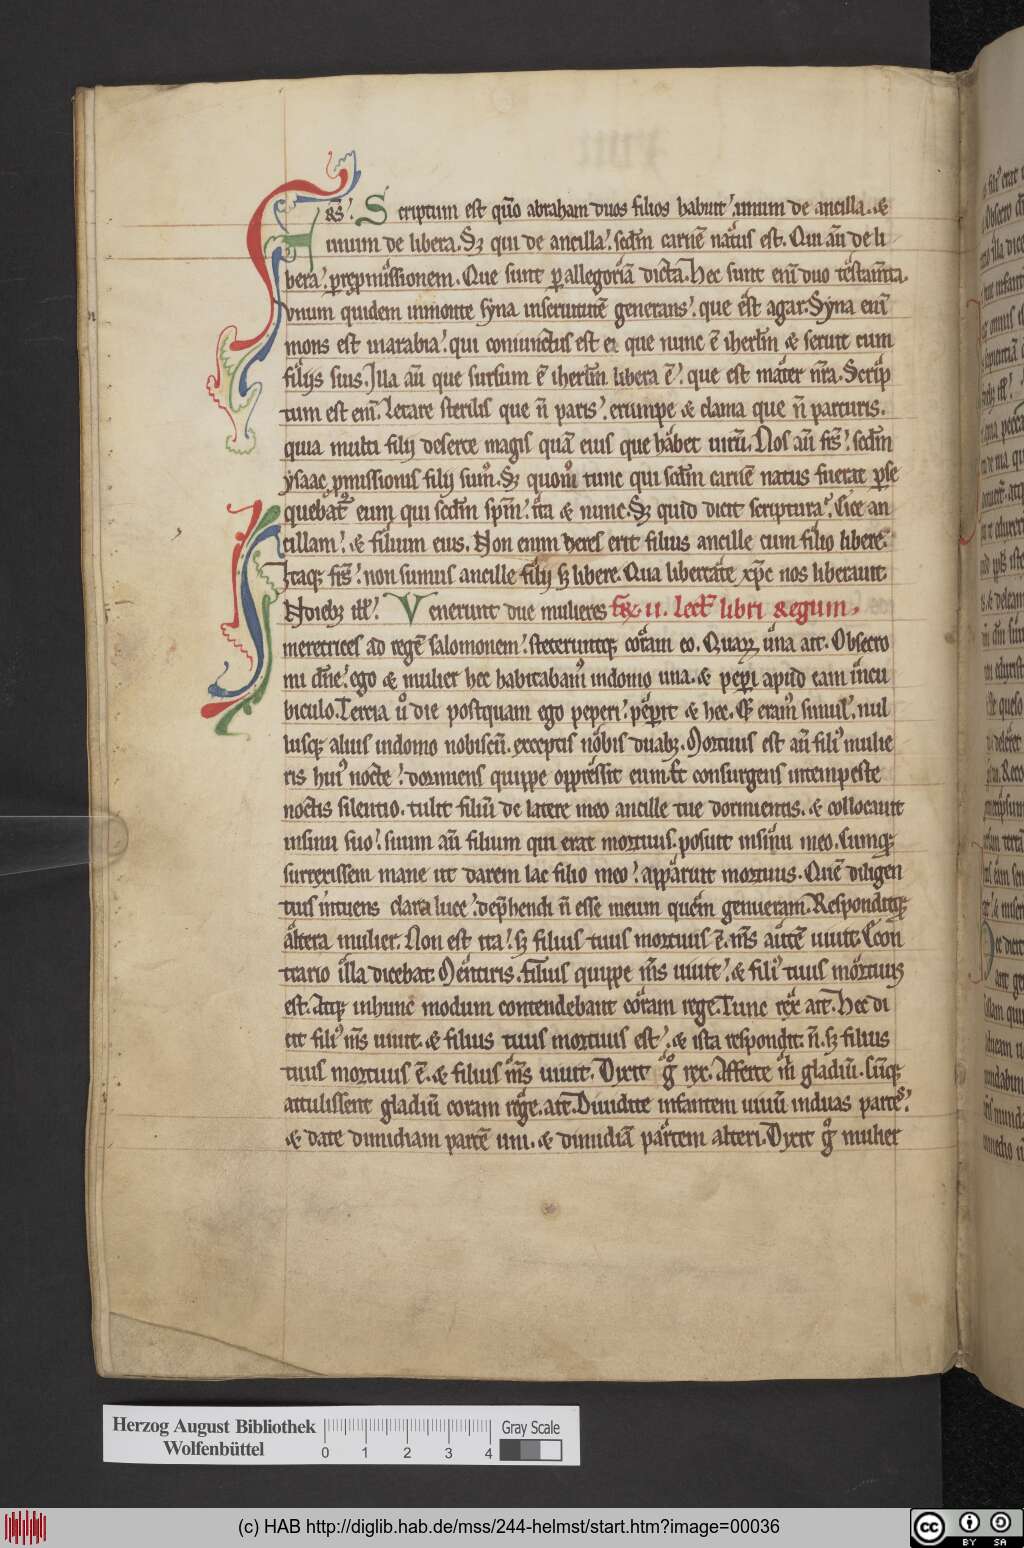 Frs. Scriptum est qm̄o abraham duos filios habuit. unum de ancilla. &
unum de libera. Sꝫ qui de ancilla. scdm carnē natus est. Qui aūt de li
bera. per repmissionem. Que sunt per allegoriā dicta. Hec sunt enī duo testamta.
Vnum quidem inmonte syna inseruitutē generans. que est agar. Syna enī
mons est inarabia. qui coniunctus est ei que nunc ē iherlm & seruit cum
filijs suis. Illa aūt que sursum ē iherlm libera ē. que est mater nr̄a. Scrip
tum est enī. Letare sterilis que n̄ paris. erumpe & clama que n̄ parturis.
quia multi filij deserte magis quā eius que habet uirū. Nos aūt frs. scdm
ysaac pmissionis filij sumꝰ. Sꝫ quomō tunc qui scdm carnē natus fuerat perse
quebatur eum qui scdm spm. ita & nunc. Sꝫ quid dicit scriptura. Eice an
cillam. & filium eius. Non enim heres erit filius ancille cum filio libere.
Itaqꝫ frs. non sumus ancille filij sꝫ libere. Qua libertate xp̄c nos liberauit.
Venerunt due mulieres fr. ii. Lect libri regum.
INdiebꝫ ill. meretrices ad regē salomonem. steteruntqꝫ coram eo. Quarꝫ una ait. Obsecro
mi dn̄e. ego & mulier hec habitabamꝰ indomo una. & peperi apud eam incu
biculo. Tercia uͦ die postquam ego peperi. peperit & hec. Et eramꝰ simul. nul
lusqꝫ alius indomo nobiscū. exceptis nobis duabꝫ. Mortuus est aūt filiꝰ mulie
ris huiꝰ nocte. dormiens quippe oppressit eum. Et consurgens intempeste
noctis silentio. tulit filiū de latere meo ancille tue dormientis. & collocauit
insinu suo. suum aūt filium qui erat mortuus. posuit insinu meo. Cumqꝫ
surrexissem mane ut darem lac filio meo. apparuit mortuus. Quē diligen
tius intuens clara luce. dep̄hendi n̄ esse meum quem genueram. Responditqꝫ
altera mulier. Non est ita. sꝫ filius tuus mortuus ē. ms̄ autē uiuit. Econ
trario illa dicebat. Mentiris. filius quippe ms̄ uiuit. & filiꝰ tuus mortuus
est. Atqꝫ inhunc modum contendebant coram rege. Tunc rex ait. Hec di
cit filiꝰ ms̄ uiuit. & filius tuus mortuus est. & ista respondit. n̄. sꝫ filius
tuus mortuus ē. & filius ms̄ uiuit. Dixit gͦ rex. Afferte m̄ gladiū. Cūqꝫ
attulissent gladiū coram rege. ait. Diuidite infantem uiuū induas partes.
& date dimidiam partē uni. & dimidiā partem alteri. Dixit gͦ mulier
Herzog August Bibliothek
Wolfenbüttel
0 1 2 3 4
Gray Scale
(c) HAB http://diglib.hab.de/mss/244-helmst/start.htm?image=00036
cc BY SA